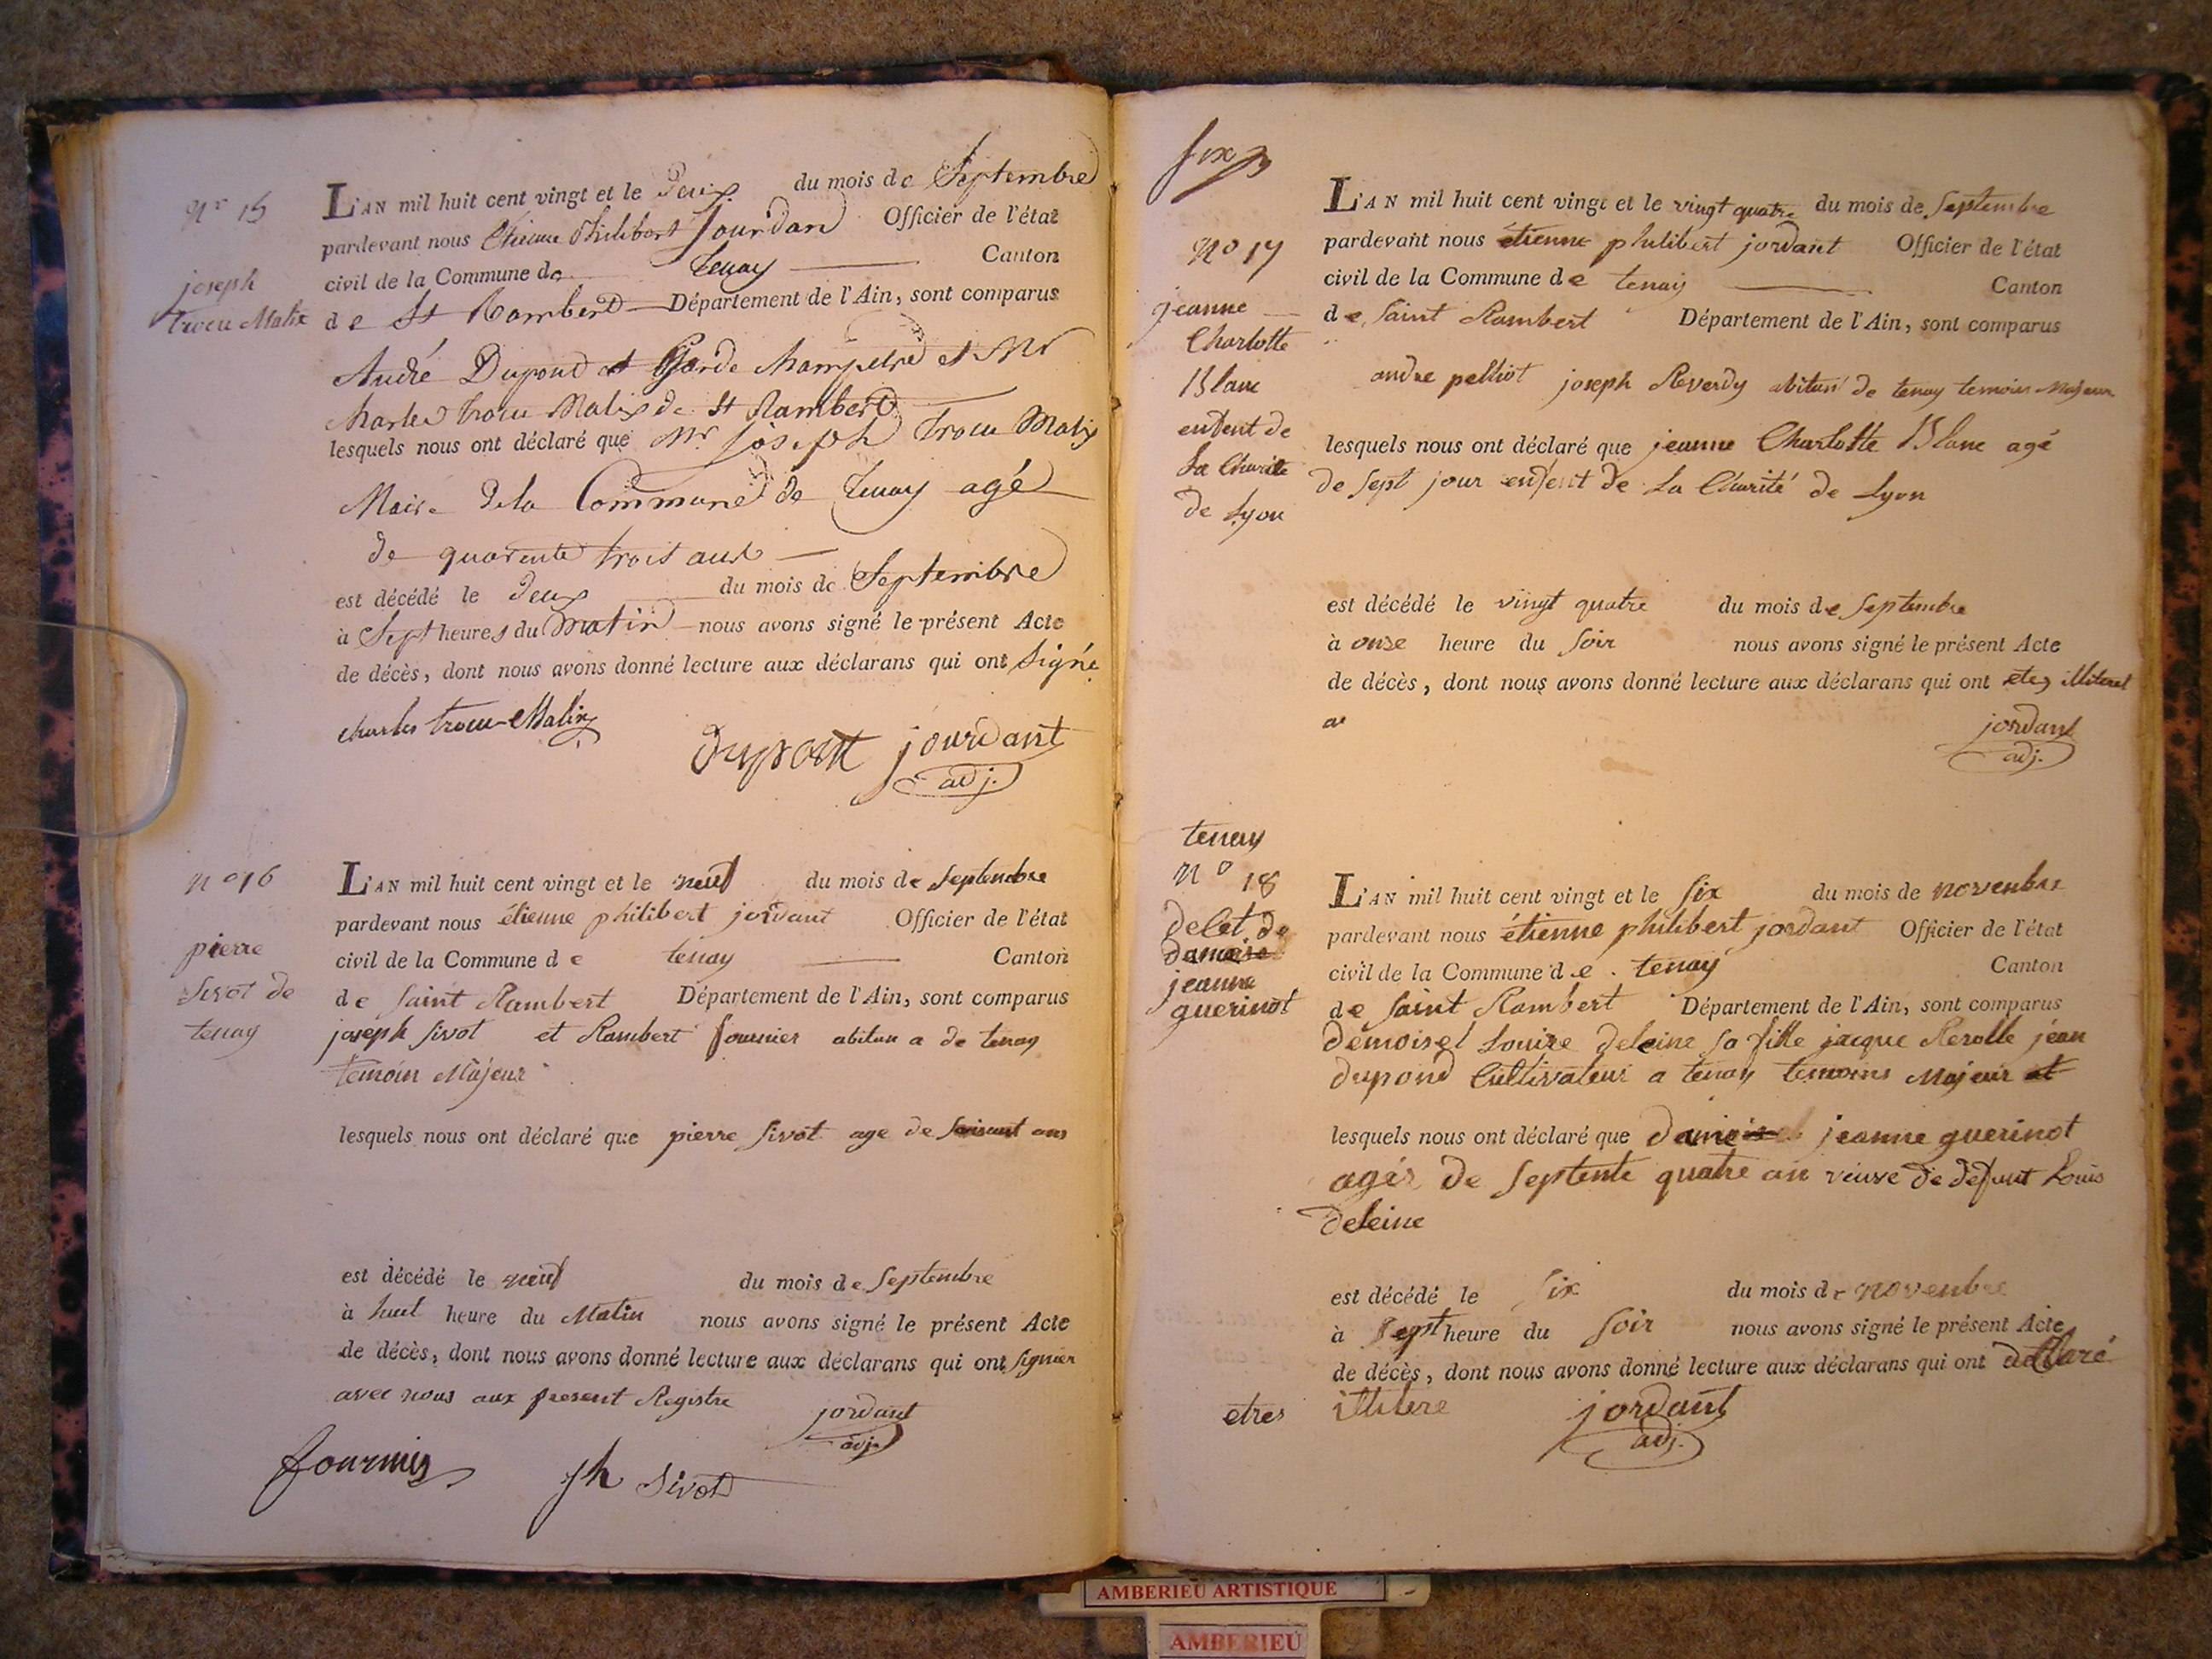 Nº 15
joseph
trocu Matix
L'AN mil huit cent vingt et le Deux du mois de Septembre
pardevant nous Etienne Philibert Jourdan Officier de l'état
civil de la Commune de Tenay Canton
de St Rambert Département de l'Ain, sont comparus
André Dupond et Garde Champetre et Mr
Charles trocu Matix de St Rambert
lesquels nous ont déclaré que Mr Joseph trocu Matix
Maire de la Commune de Tenay agé
de quarente trois ans
est décédé le deux du mois de Septembre
à Sept heures du Matin nous avons signé le présent Acte
de décès, dont nous avons donné lecture aux déclarans qui ont Signé
charles trocu-Matix
dupont jourdant
adj.
nº 16
pierre
Sivot de
tenay
L'AN mil huit cent vingt et le neuf du mois de Septembre
pardevant nous étienne philibert jordant Officier de l'état
civil de la Commune de tenay Canton
de Saint Rambert Département de l'Ain, sont comparus
joseph Sivot et Rambert fournier abitan a de tenay
temoin Majeur
lesquels nous ont déclaré que pierre Sivot age de Soisant ans
est décédé le neuf du mois de Septembre
à huit heure du Matin nous avons signé le présent Acte
de décès, dont nous avons donné lecture aux déclarans qui ont Signier
avec nous aux present Registre
jordant
adj.
fournier
jh Sivot
six
nº 17
jeanne
Charlotte
Blanc
enfent de
La Charite
de Lyon
L'AN mil huit cent vingt et le vingt quatre du mois de Septembre
pardevant nous étienne philibert jordant Officier de l'état
civil de la Commune de tenay Canton
de Saint Rambert Département de l'Ain, sont comparus
andre pelliot joseph Reverdy abitan de tenay temoins Majeur
lesquels nous ont déclaré que jeanne Charlotte Blanc agé
de Sept jour enfent de La Charité de Lyon
est décédé le vingt quatre du mois de Septembre
à onse heure du Soir nous avons signé le présent Acte
de décès, dont nous avons donné lecture aux déclarans qui ont
jordant
adj.
tenay
nº 18
de
damoisel
jeanne
guerinot
L'AN mil huit cent vingt et le Six du mois de novembre
pardevant nous étienne philibert jordant Officier de l'état
civil de la Commune de tenay Canton
de Saint Rambert Département de l'Ain, sont comparus
demoisel Louise deleine Sa fille jacque Rerolle jean
dupond Cultivateur a tenay temoins Majeur et
lesquels nous ont déclaré que damoisel jeanne guerinot
agés de Septente quatre an veuve de defunt Louis
deleine
est décédé le Six du mois de novembre
à Sept heure du Soir nous avons signé le présent Acte
de décès, dont nous avons donné lecture aux déclarans qui ont declaré
etres illitere
jordant
adj.
AMBERIEU ARTISTIQUE
AMBERIEU